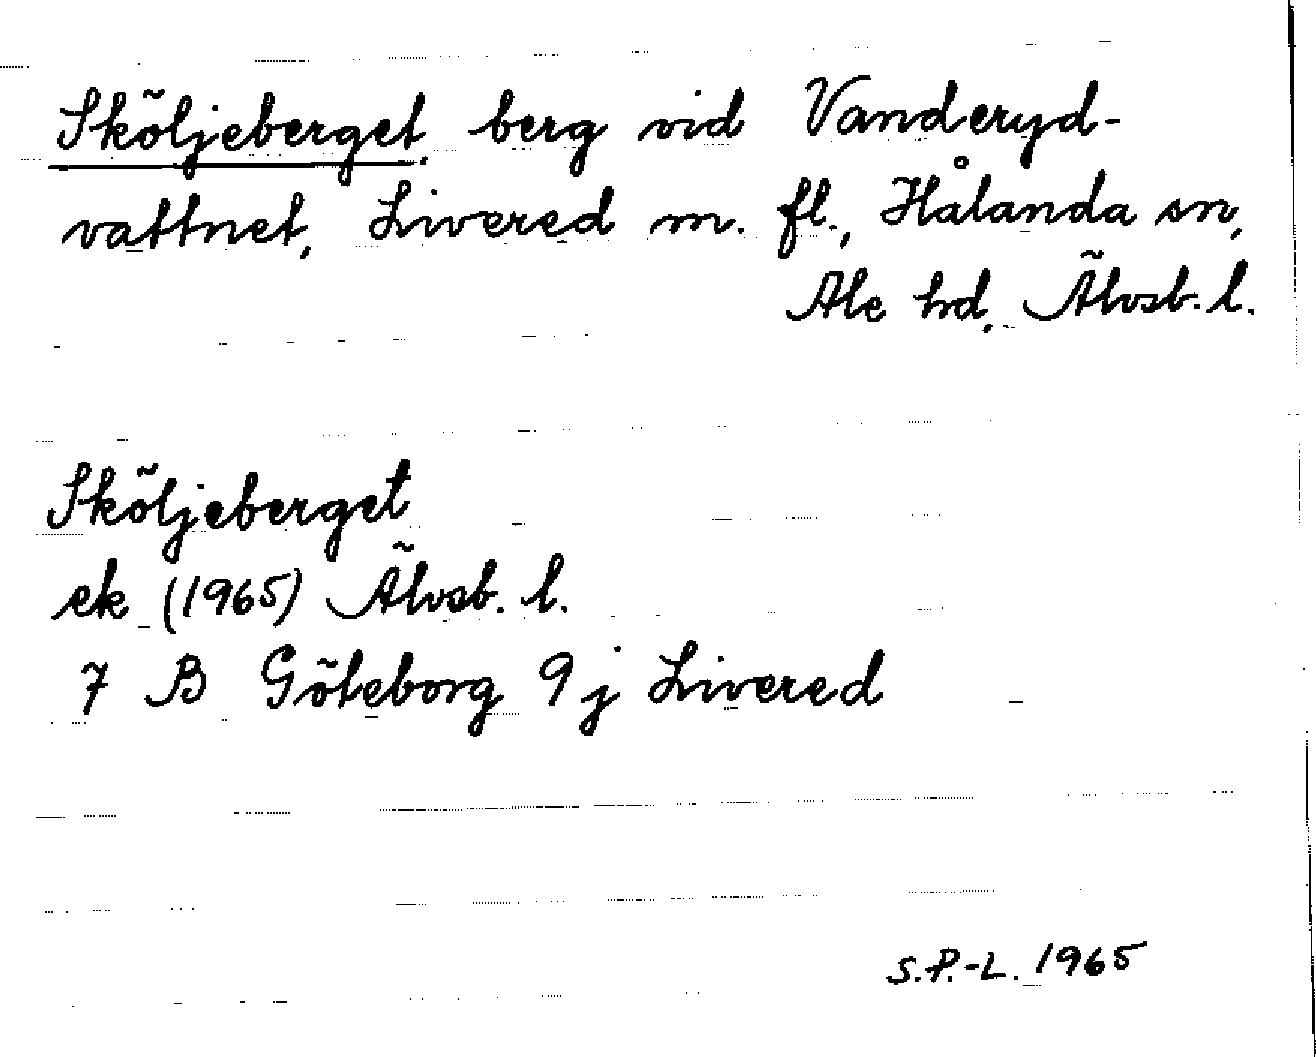 Sköljeberget, berg vid Vanderyd-
vattnet, Livered m. fl., Hålanda sn,
Ale hd, Älvsb. l.
Sköljeberget
ek (1965) Älvsb. l.
7 B Göteborg 9j Livered
S.P.-L. 1965